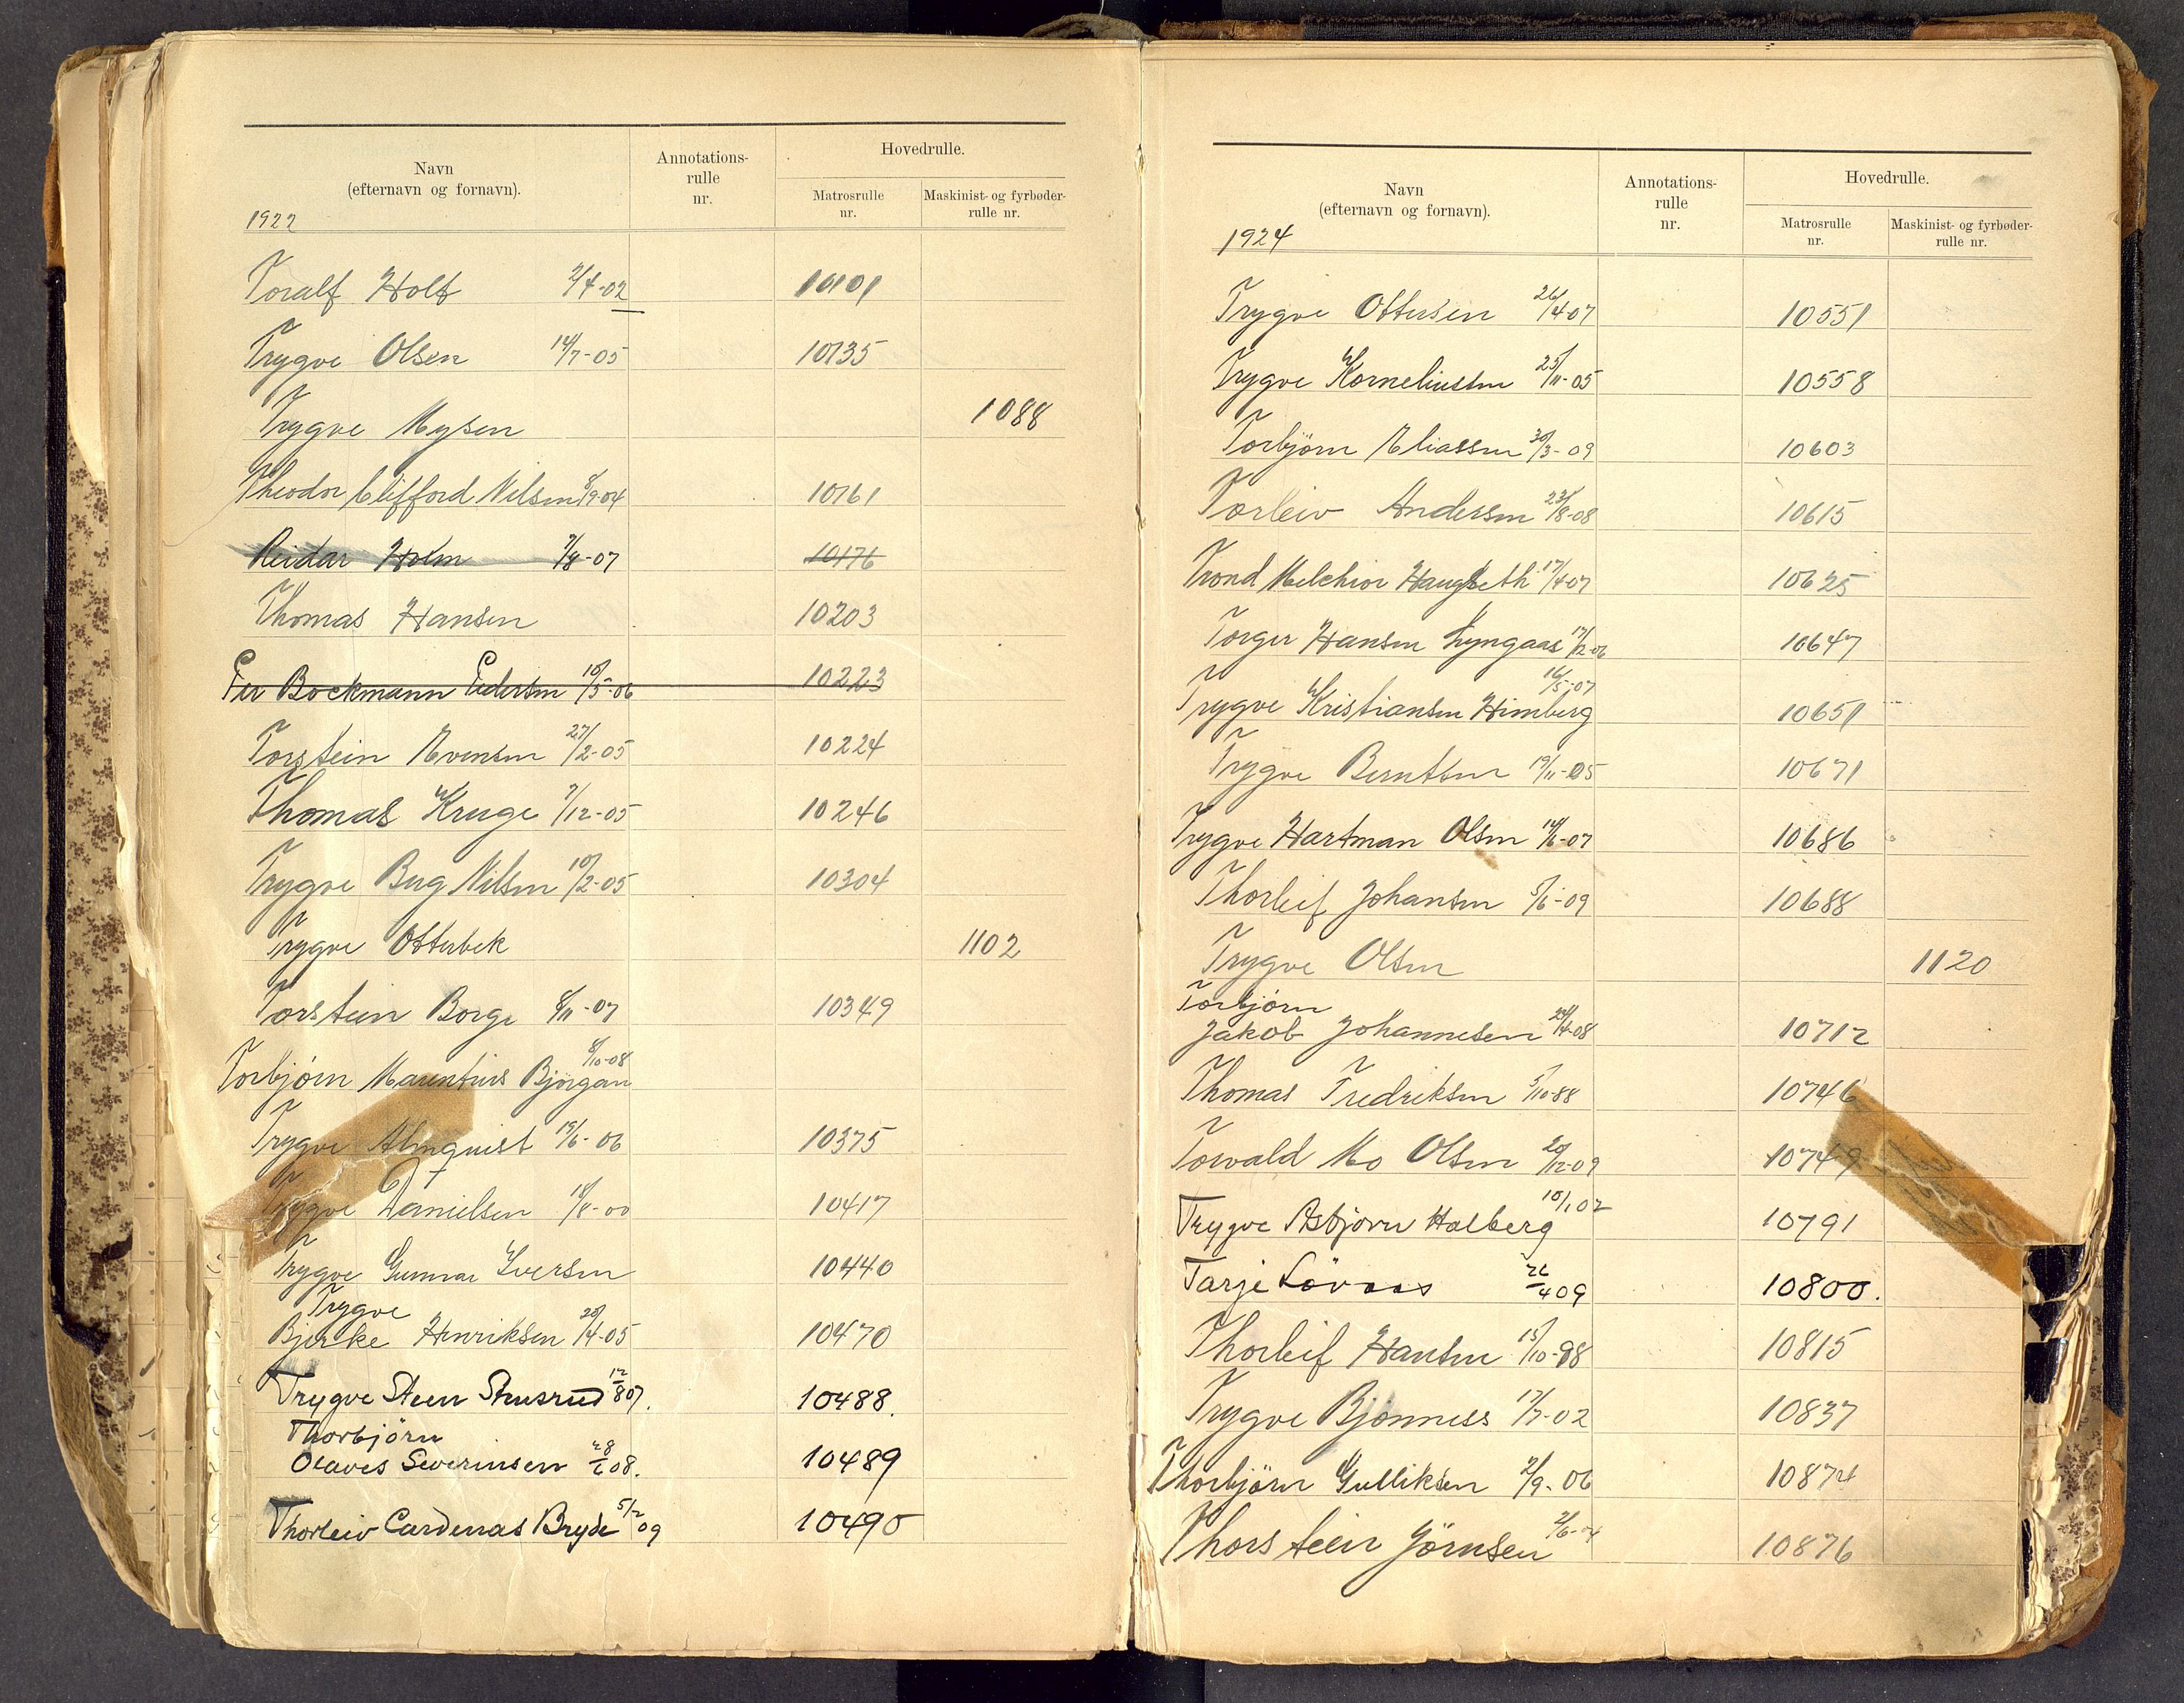 Navn
(efternavn og fornavn).
Annotations-
rulle
nr.
Hovedrulle.
Matrosrulle
nr.
Maskinist- og fyrbøder-
rulle nr.
1922
Toralf Holt 2/4-02 10101
Trygve Olsen 14/7-05 10135
Trygve Mysen 1088
Theodor Clifford Nilsen 8/9-04 10161
Reidar Holm 7/8-07 10176
Thomas Hansen 10203
Per Bockmann Pedersen 10/5-06 10223
Torstein Evensen 27/2-05 10224
Thomas Kruge 7/12-05 10246
Trygve Berg Nilsen 10/2-05 10304
Trygve Otterbek 1102
Torstein Borge 8/11-07 10349
8/10-08
Torbjørn Marentius Bjørgan
Trygve Almquist 19/6-06 10375
Trygve Danielsen 18/8-00 10417
Trygve Gunnar Iversen 10440
Trygve
Bjerke Henriksen 20/4-05 10470
Trygve Steen Stusrud 12/8 07. 10488.
Thorbjørn
Olaves Severinsen 28/6 08. 10489
Thorleiv Cardenas Bryde 5/2 09 10490
Navn
(efternavn og fornavn).
Annotations-
rulle
nr.
Hovedrulle.
Matrosrulle
nr.
Maskinist- og fyrbøder-
rulle nr.
1924
Trygve Ottersen 26/4-07 10551
Trygve Korneliussen 25/11-05 10558
Torbjørn Eliassen 30/3-09 10603
Torleiv Andersen 23/8-08 10615
Trond Melchior Haugseth 17/4-07 10625
Torger Hansen Lyngaas 17/12-06 10647
16/5-07
Trygve Kristiansen Himberg 10651
Trygve Berntsen 19/11-05 10671
Trygve Hartman Olsen 14/6-07 10686
Thorleif Johansen 5/6-09 10688
Trygve Olsen 1120
Torbjørn
Jakob Johannesen 24/4-08 10712
Thomas Fredriksen 5/10-88 10746
Torvald Mo Olsen 20/12-09 10749
Trygve Asbjørn Halberg 10/1 02 10791
Tarje Lövaas 26/4 09 10800.
Thorleif Hansen 15/10-98 10815
Trygve Bjønness 17/7-02 10837
Thorbjørn Gulliksen 2/9-06 10874
Thorstein Jörnsen 2/6-04 10876